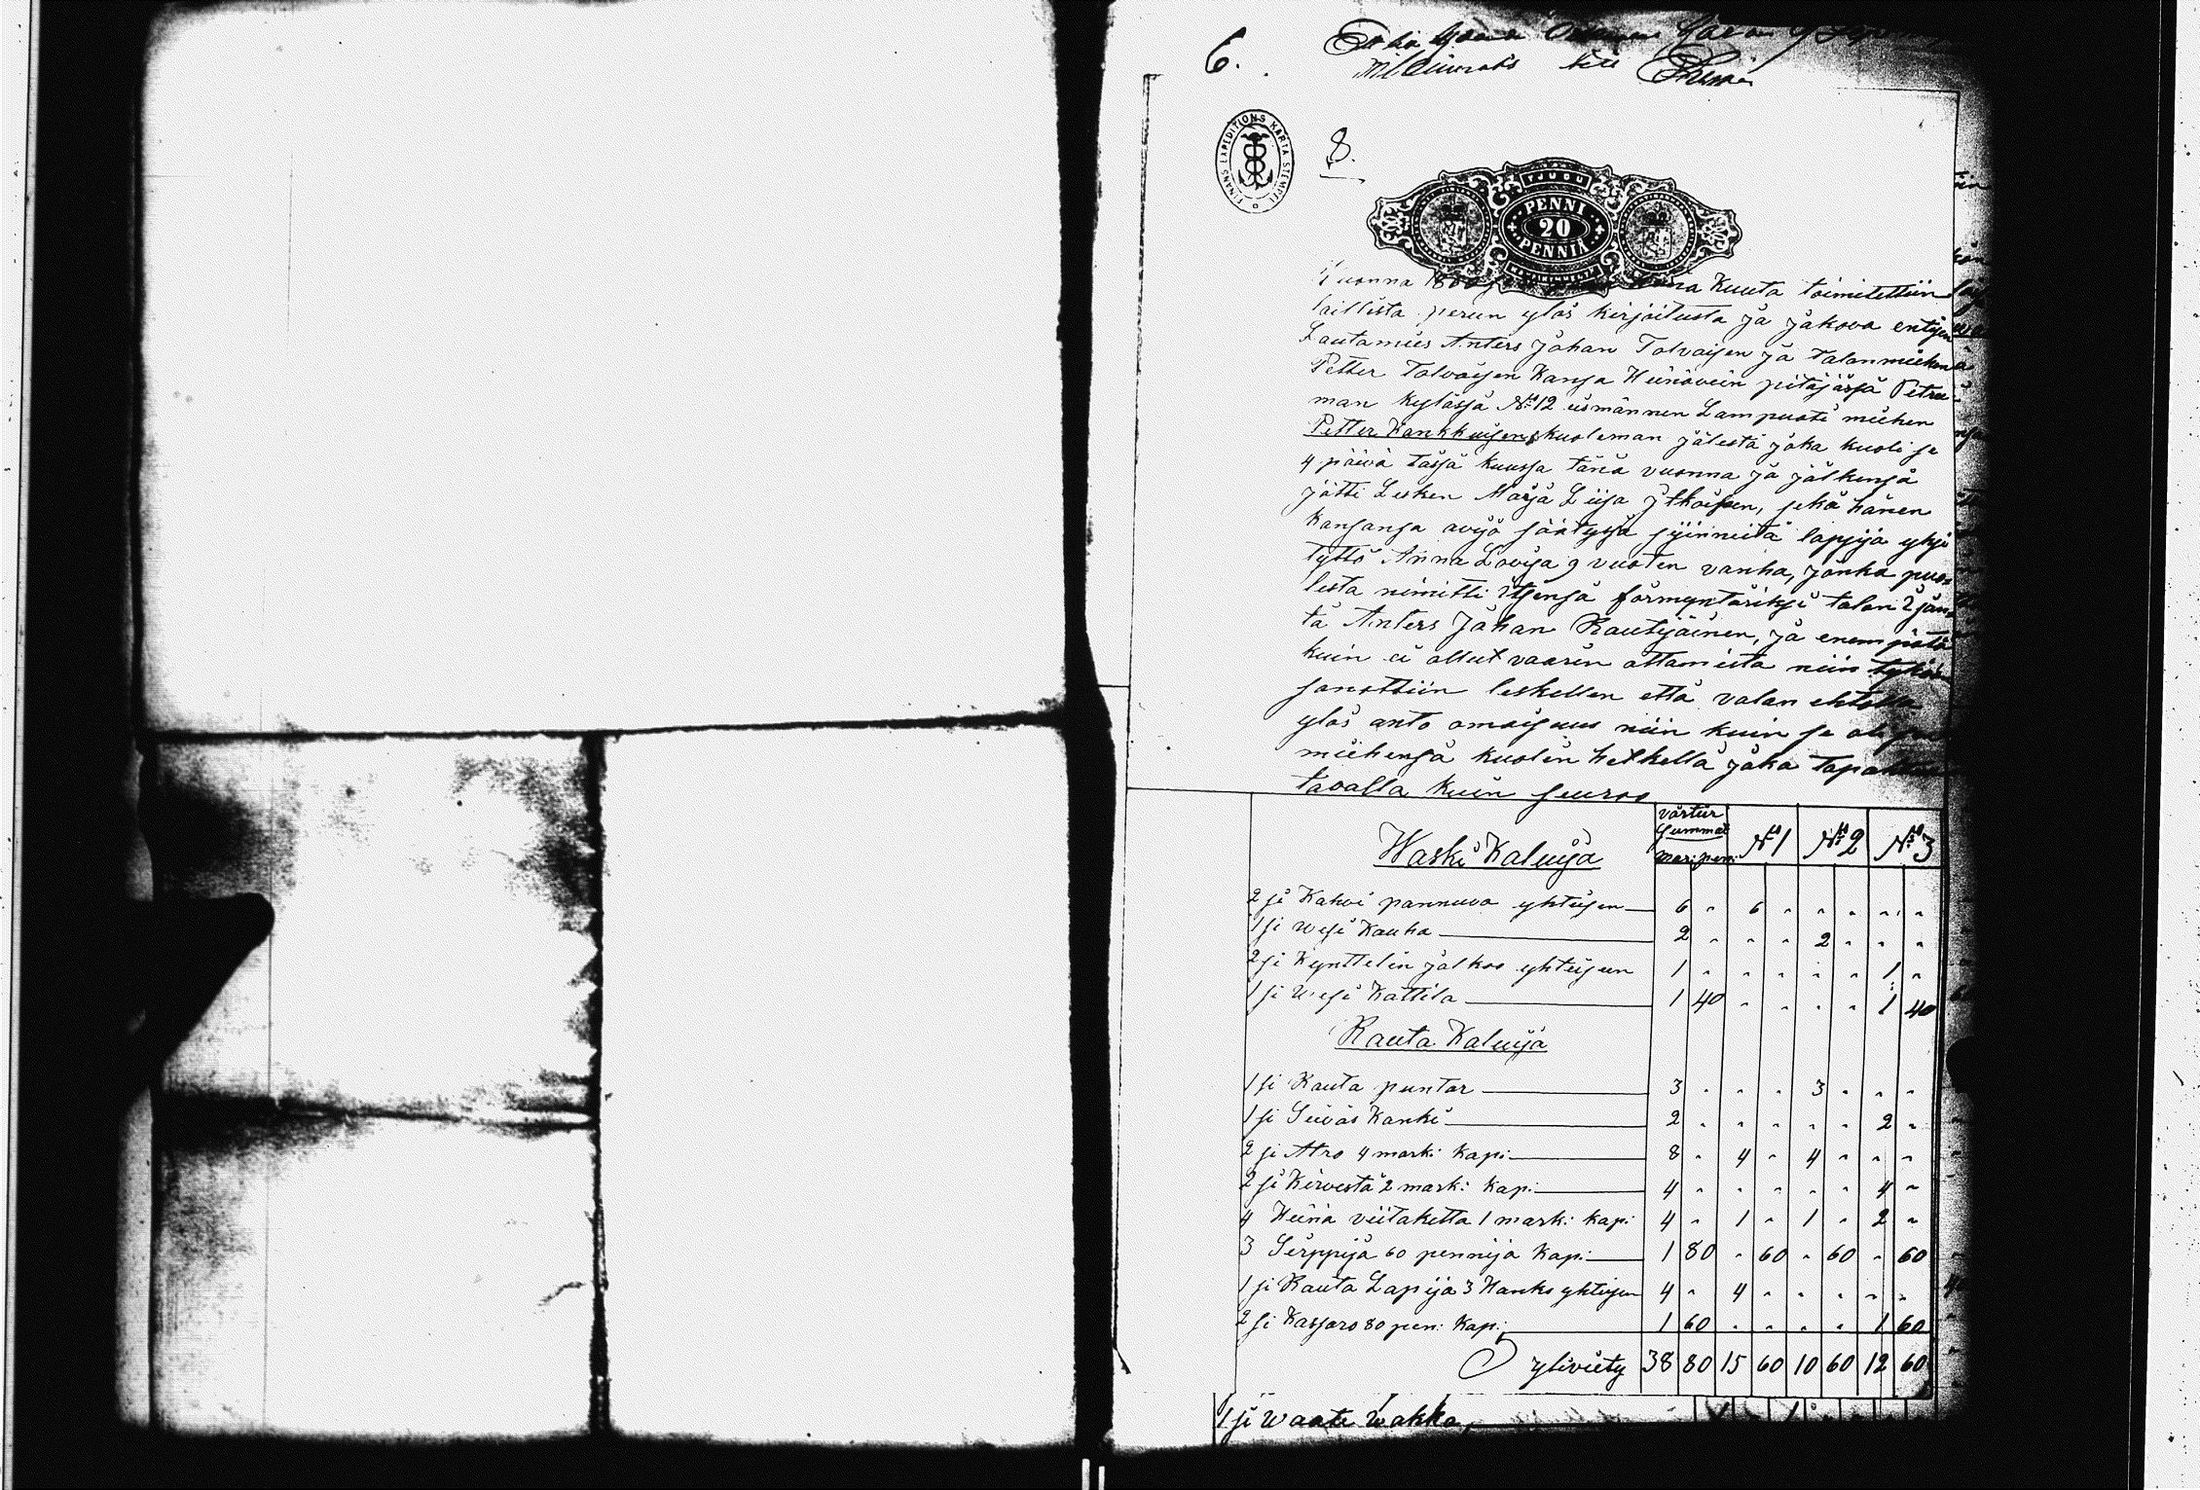 6.
8.
FINANS EXPEDITIONS KARTA STEMPEL
TJUGU
PENNI
20
PENNIÄ
Vuonna Kuuta toimitettiin
laillista perun ylös kirjoitusta ja jakova entijen
Lautamies Anters Johan Tolvaisen ja talanmiehen
Petter Tolvaisen Kansa Heinävein pitäjässä Petru
man kylässä No 12 iismännen Lampuoti miehen
Petter Kankkuisen kuoleman jälestä joka kuoli se
4 päivä tässä kuussa tänä vuonna ja jälkensä
jätti Lesken Maija Liisa Itkoisen, sekä hänen
Kansansa avijo säätyssä syinneitä lapsija yksi
tyttö Anna Lovisa 9 vuoten vanha, jonka puo-
lesta nimitti itsensä förmyntäriksi talan Isän-
tä Anters Johan Rautijainen, ja enempätä
kuin ei ollut vaarin ottamista niin
sanottiin leskellen että valan ehtolla
ylös anto omaisuus niin kuin se oli
miehensä kuolin hetkellä joka
tavalla kuin seuraa
Waski Kaluija
värtiir Summat
mar: pen:
No 1
No 2
No 3
2 si Kahvi pannuva yhteisen 6 " 6 " " " " "
1 si Wesi Kauha 2 " " " 2 " " "
2 si Kynttelin jalkoo yhteisen 1 " " " " " 1 "
1 si Wesi Kattila 1 40 " " " " 1 40
Rauta Kaluija
1 si Rauta puntar 3 " " " 3 " " "
1 si Seiväs Kanki 2 " " " " " 2 "
2 si Atro 4 mark: Kapi 8 " 4 " 4 " " "
2 si Kirvestä 2 mark: Kapi 4 " " " " " 4 "
4 Heinä viitaketta 1 mark: Kapi 4 " 1 " 1 " 2 "
3 Serppijä 60 pennijä Kapi 1 80 " 60 " 60 " 60
1 si Rauta Lapija 3 Hanko yhteisen 4 " 4 " " " " "
2 si Kassaro 80 pen: Kapi 1 60 " " " " 1 60
yliviety 38 80 15 60 10 60 12 60
1 si Waate Wakka